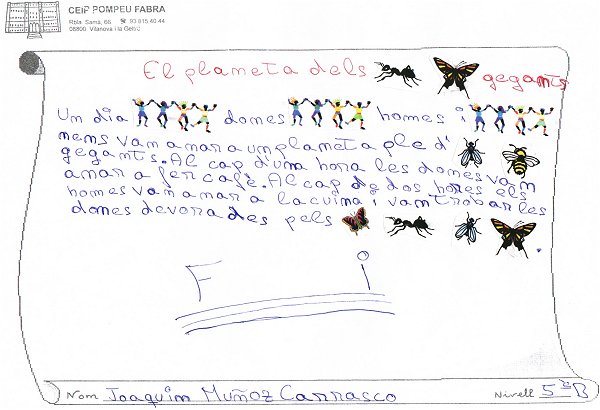 CEIP POMPEU FABRA
Rbla. Samà, 66 ☎ 93 815 40 44
08800 Vilanova i la Geltrú
El planeta dels gegants
Un dia domes homes i
nens van anar a un planeta ple d'
gegants. Al cap d'una hora les domes van
anar a fer cafè. Al cap de dos hores els
homes van anar a la cuina i van trobar les
domes devorades pels .
Fi
Nom Joaquim Muñoz Carrasco Nivell 5è B